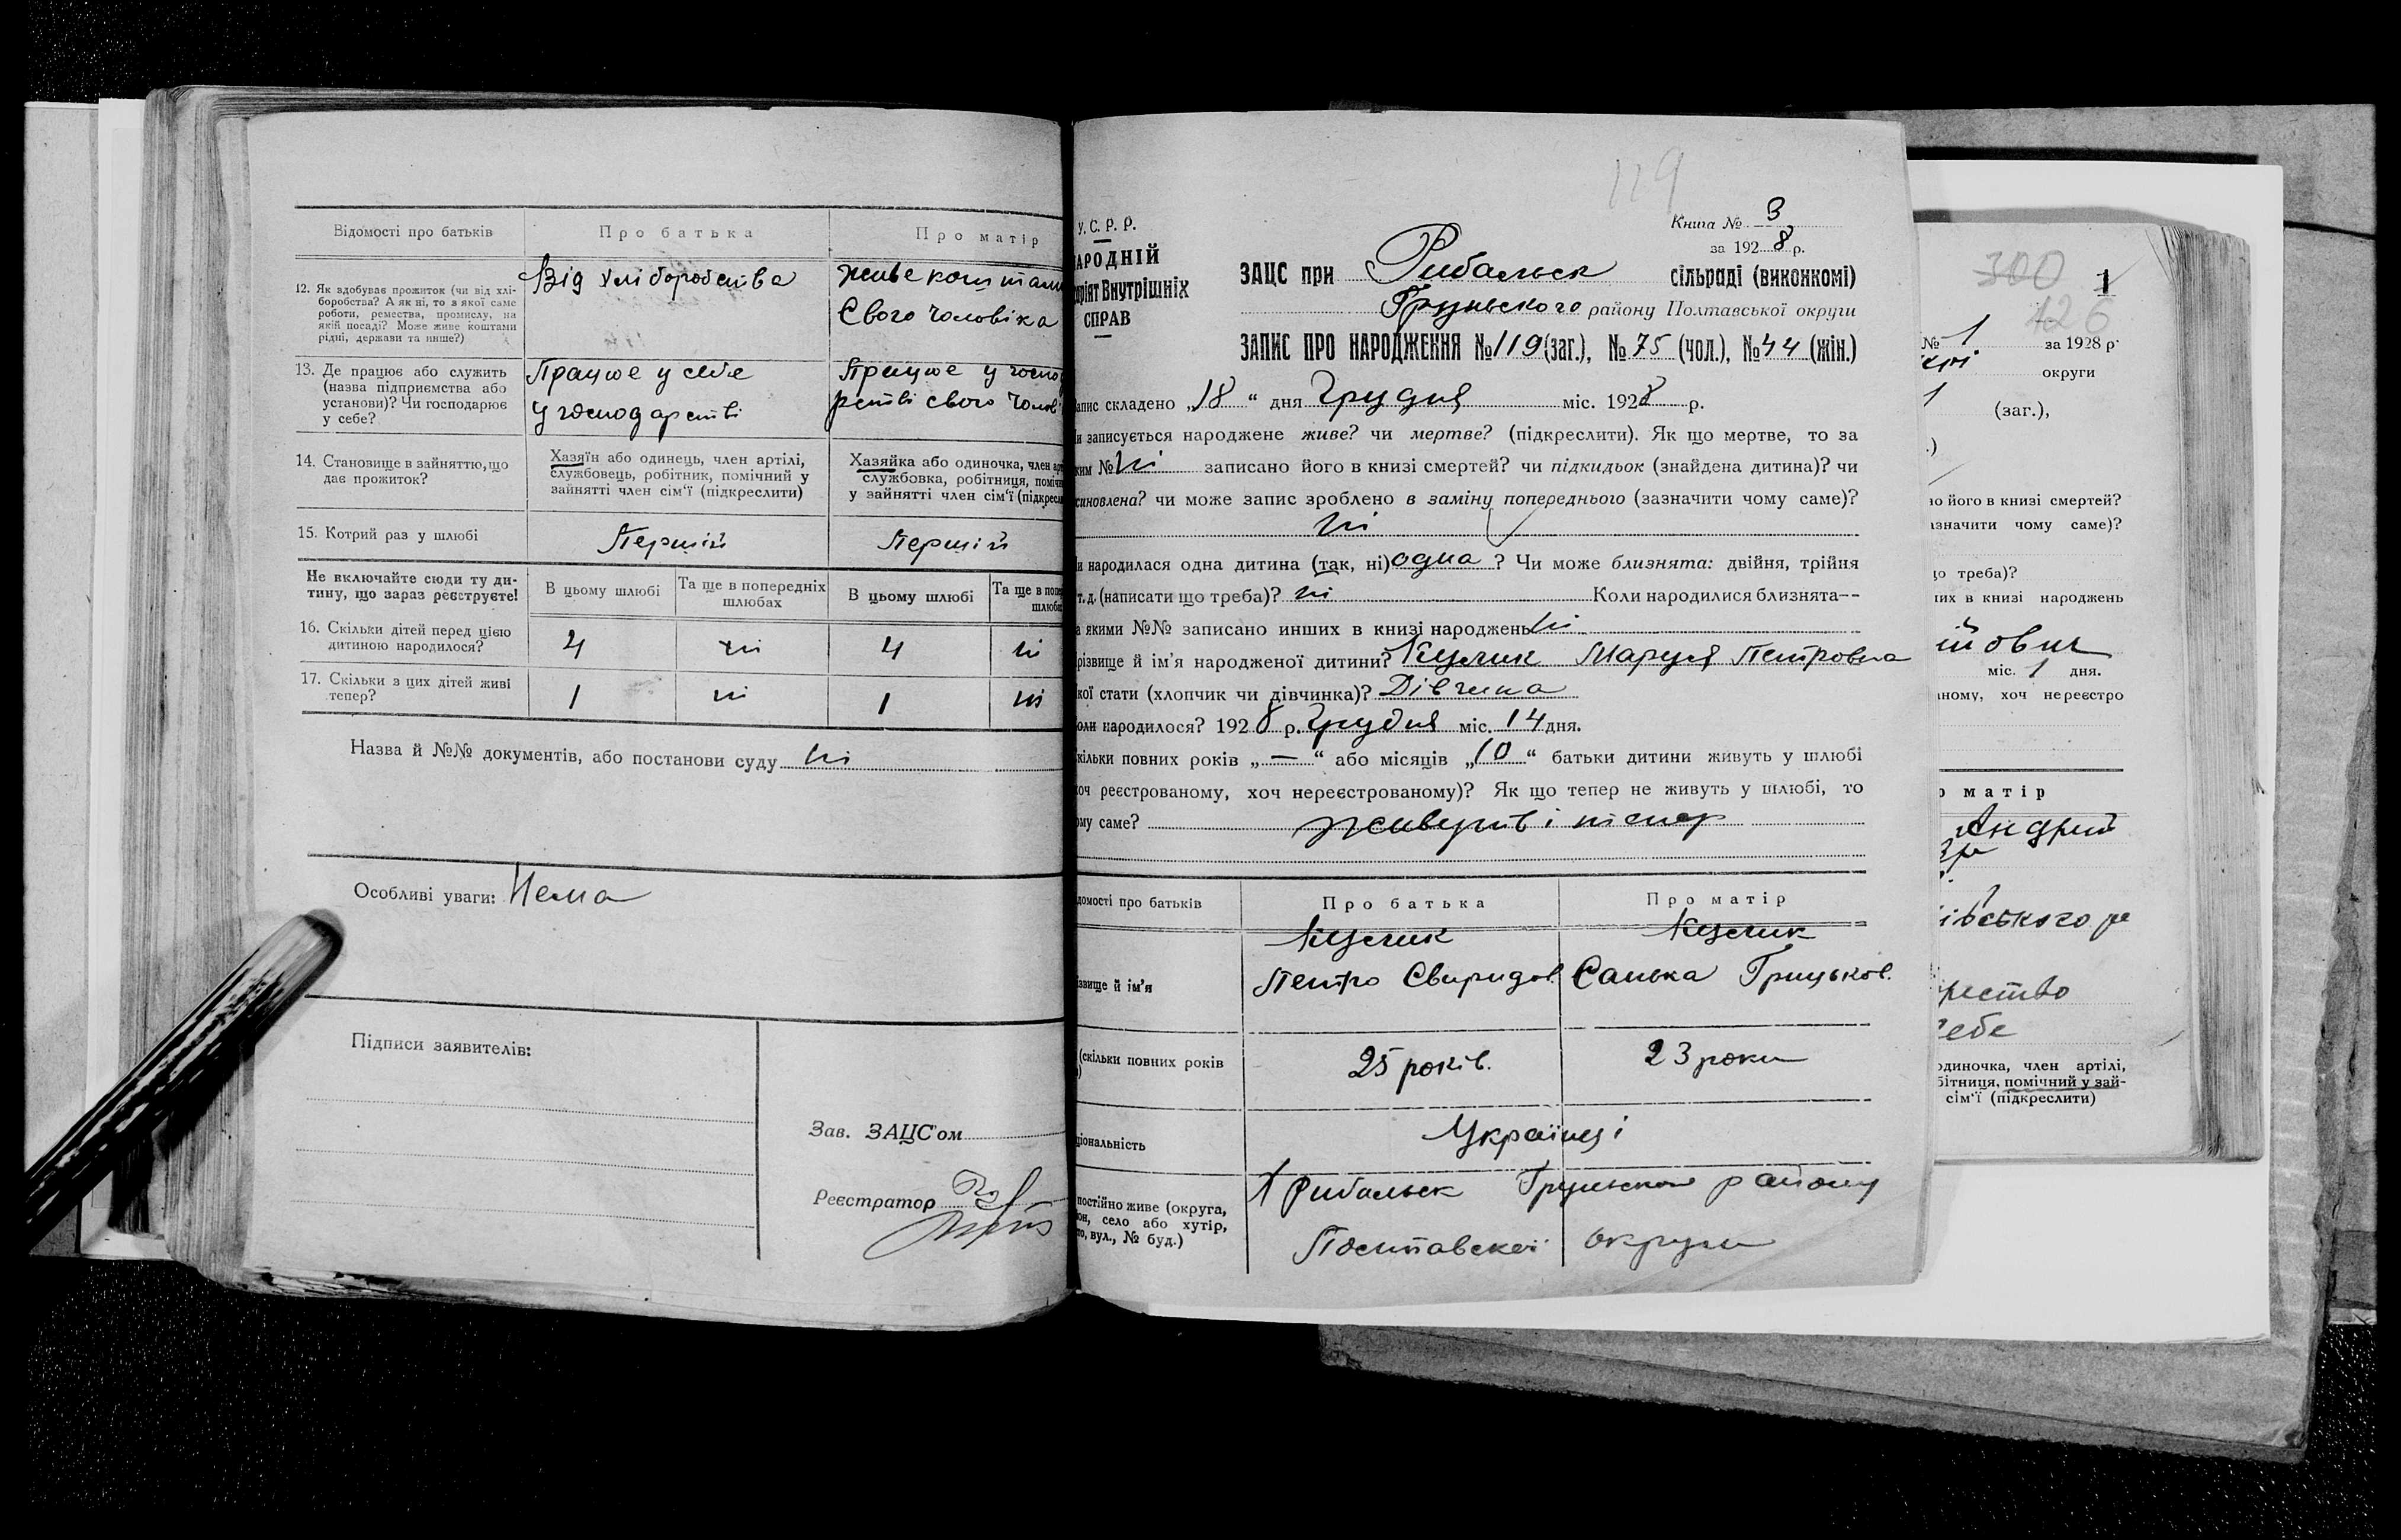 Відомості про батьків
Про батька
Про матір
12. Як здобуває прожиток (чи від хлі-
боробства? А як ні, то з якої саме
роботи, ремества, промислу, на
якій посаді? Може живе коштами
рідні, держави та инше?)
Від хліборобства
живе коштами
Свого чоловіка
13. Де працює або служить
(назва підприємства або
установи)? Чи господарює
у себе?
Працює у себе
у господарстві
Працює у госпо
рстві свого чолов
14. Становище в зайняттю, що
дає прожиток?
Хазяїн або одинець, член артілі,
службовець, робітник, помічний у
зайнятті член сім'ї (підкреслити)
Хазяйка або одиночка, член арт
службовка, робітниця, поміч
у зайнятті член сім'ї (підкресл
15. Котрий раз у шлюбі
Перший
Перший
Не включайте сюди ту ди-
тину, що зараз реєструєте!
В цьому шлюбі
Та ще в попередніх
шлюбах
В цьому шлюбі
Та ще в попе
шлюба
16. Скільки дітей перед цією
дитиною народилося?
4 ні 4 ні
17. Скільки з цих дітей живі
тепер?
1 ні 1 ні
Назва й №№ документів, або постанови суду ні
Особливі уваги: Нема
Підписи заявителів:
Зав. ЗАЦС'ом
Реєстратор
119
У.С.Р.Р.
АРОДНІЙ
ріят Внутрішніх
СПРАВ
Книга № 3
за 1928 р.
ЗАЦС при Рибальск сільраді (виконкомі)
Груньского району Полтавської округи
ЗАПИС ПРО НАРОДЖЕННЯ №119 (заг.), №75 (чол.), №44 (жін.)
апис складено „18“ дня Грудня міс. 1928 р.
и записується народжене живе? чи мертве? (підкреслити). Як що мертве, то за
ким № ні записано його в книзі смертей? чи підкидьок (знайдена дитина)? чи
синовлена? чи може запис зроблено в заміну попереднього (зазначити чому саме)?
ні
и народилася одна дитина (так, ні) одна? Чи може близнята: двійня, трійня
т. д. (написати що треба)? ні Коли народилися близнята--
а якими №№ записано инших в книзі народжень ні
різвище й ім'я народженої дитини? Маруся Петровна
кої стати (хлопчик чи дівчинка)? Дівчина
оли народилося? 1928 р. Грудня міс. 14 дня.
кільки повних років „—“ або місяців „10“ батьки дитини живуть у шлюбі
оч реєстрованому, хоч нереєстрованому)? Як що тепер не живуть у шлюбі, то
ому саме? живуть і тепер
домості про батьків
Про батька
Про матір
ізвище й ім'я
Петро Свиридов.
Санька Грицьков.
(скільки повних років
25 років.
23 роки
ціональність
Українці
постійно живе (округа,
он, село або хутір,
то, вул., № буд.)
Х Рибальск Груньского району
Полтавської округи
300
1
126
№ 1 за 1928 р.
округи
(заг.),
о його в книзі смертей?
азначити чому саме)?
до треба)?
них в книзі народжень
йович
міс. 1 дня.
ному, хоч нереєстро
о матір
Андрій
івського р
рество
себе
одиночка, член артілі,
бітниця, помічний у зай-
сім'ї (підкреслити)